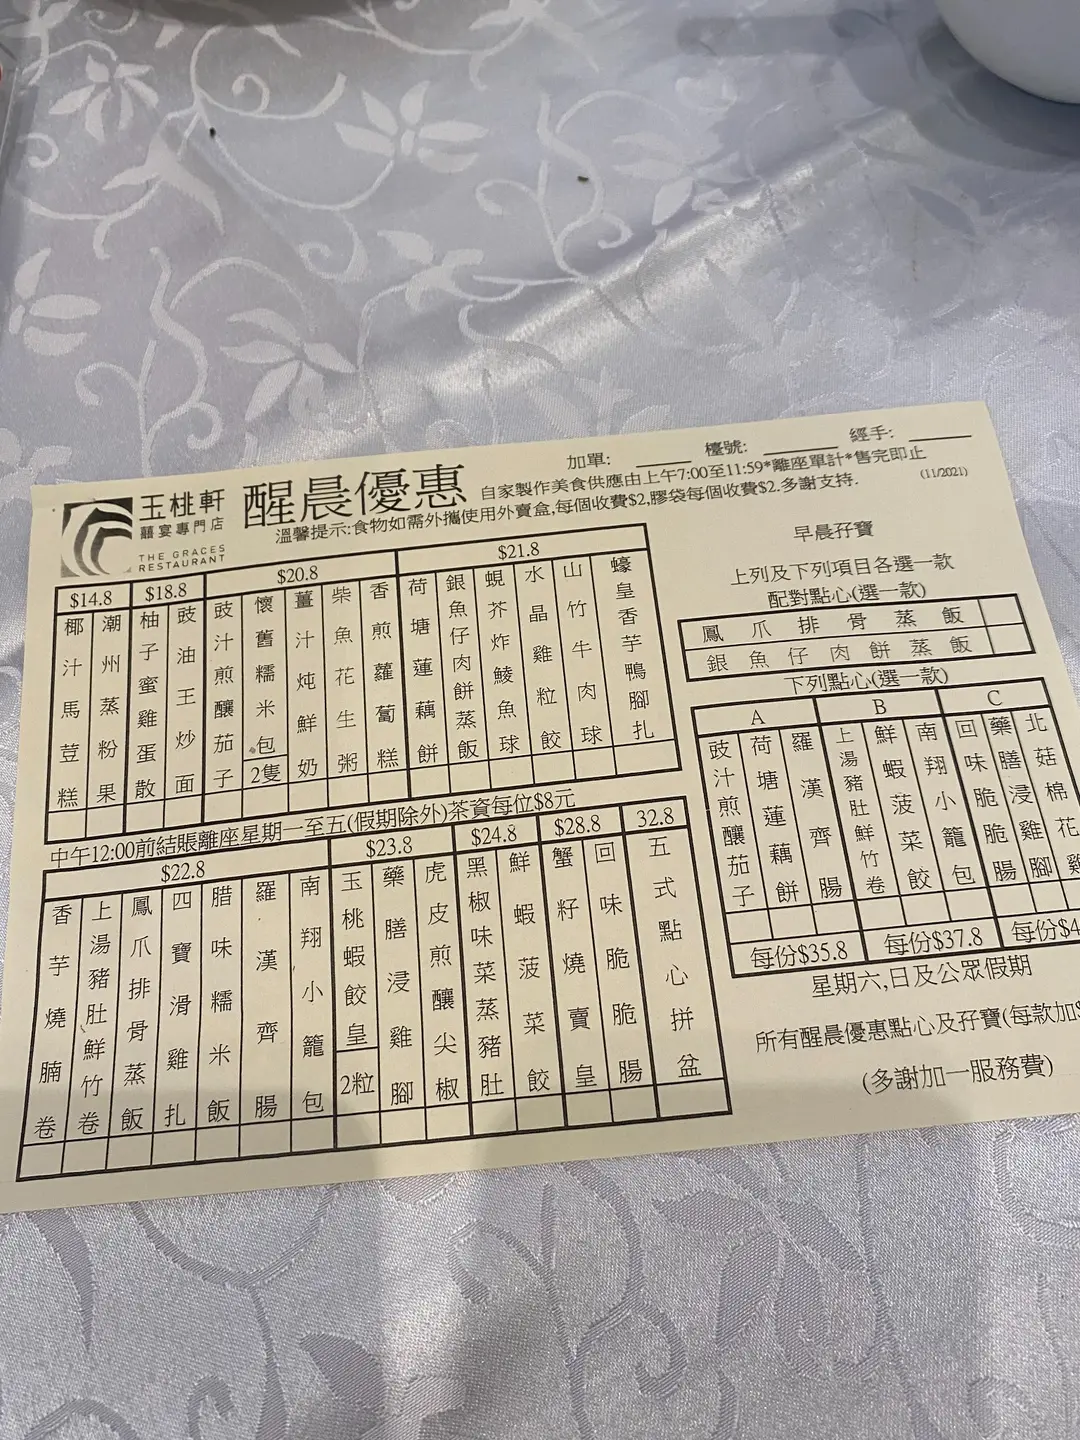 加單:
檯號:
經手:
玉桃軒
囍宴專門店
THE GRACES
RESTAURANT
醒晨優惠
自家製作美食供應由上午7:00至11:59*離座單計*售完即止
(11/2021)
溫馨提示:食物如需外攜使用外賣盒,每個收費$2,膠袋每個收費$2.多謝支持.
$14.8
$18.8
$20.8
$21.8
椰汁馬荳糕
潮州蒸粉果
柚子蜜雞蛋散
豉油王炒面
豉汁煎釀茄子
懷舊糯米包
2隻
薑汁炖鮮奶
柴魚花生粥
香煎蘿蔔糕
荷塘蓮藕餅
銀魚仔肉餅蒸飯
蜆芥炸鯪魚球
水晶雞粒餃
山竹牛肉球
蠔皇香芋鴨腳扎
中午12:00前結賬離座星期一至五(假期除外)茶資每位$8元
$22.8
$23.8
$24.8
$28.8
32.8
香芋燒腩卷
上湯豬肚鮮竹卷
鳳爪排骨蒸飯
四寶滑雞扎
腊味糯米飯
羅漢齊腸
南翔小籠包
玉桃蝦餃皇
2粒
藥膳浸雞腳
虎皮煎釀尖椒
黑椒味菜蒸豬肚
鮮蝦菠菜餃
蟹籽燒賣皇
回味脆脆腸
五式點心拼盆
早晨孖寶
上列及下列項目各選一款
配對點心(選一款)
鳳爪排骨蒸飯
銀魚仔肉餅蒸飯
下列點心(選一款)
A
B
C
豉汁煎釀茄子
荷塘蓮藕餅
羅漢齊腸
上湯豬肚鮮竹卷
鮮蝦菠菜餃
南翔小籠包
回味脆脆腸
藥膳浸雞腳
北菇棉花雞
每份$35.8
每份$37.8
每份$4
星期六,日及公眾假期
所有醒晨優惠點心及孖寶(每款加$
(多謝加一服務費)